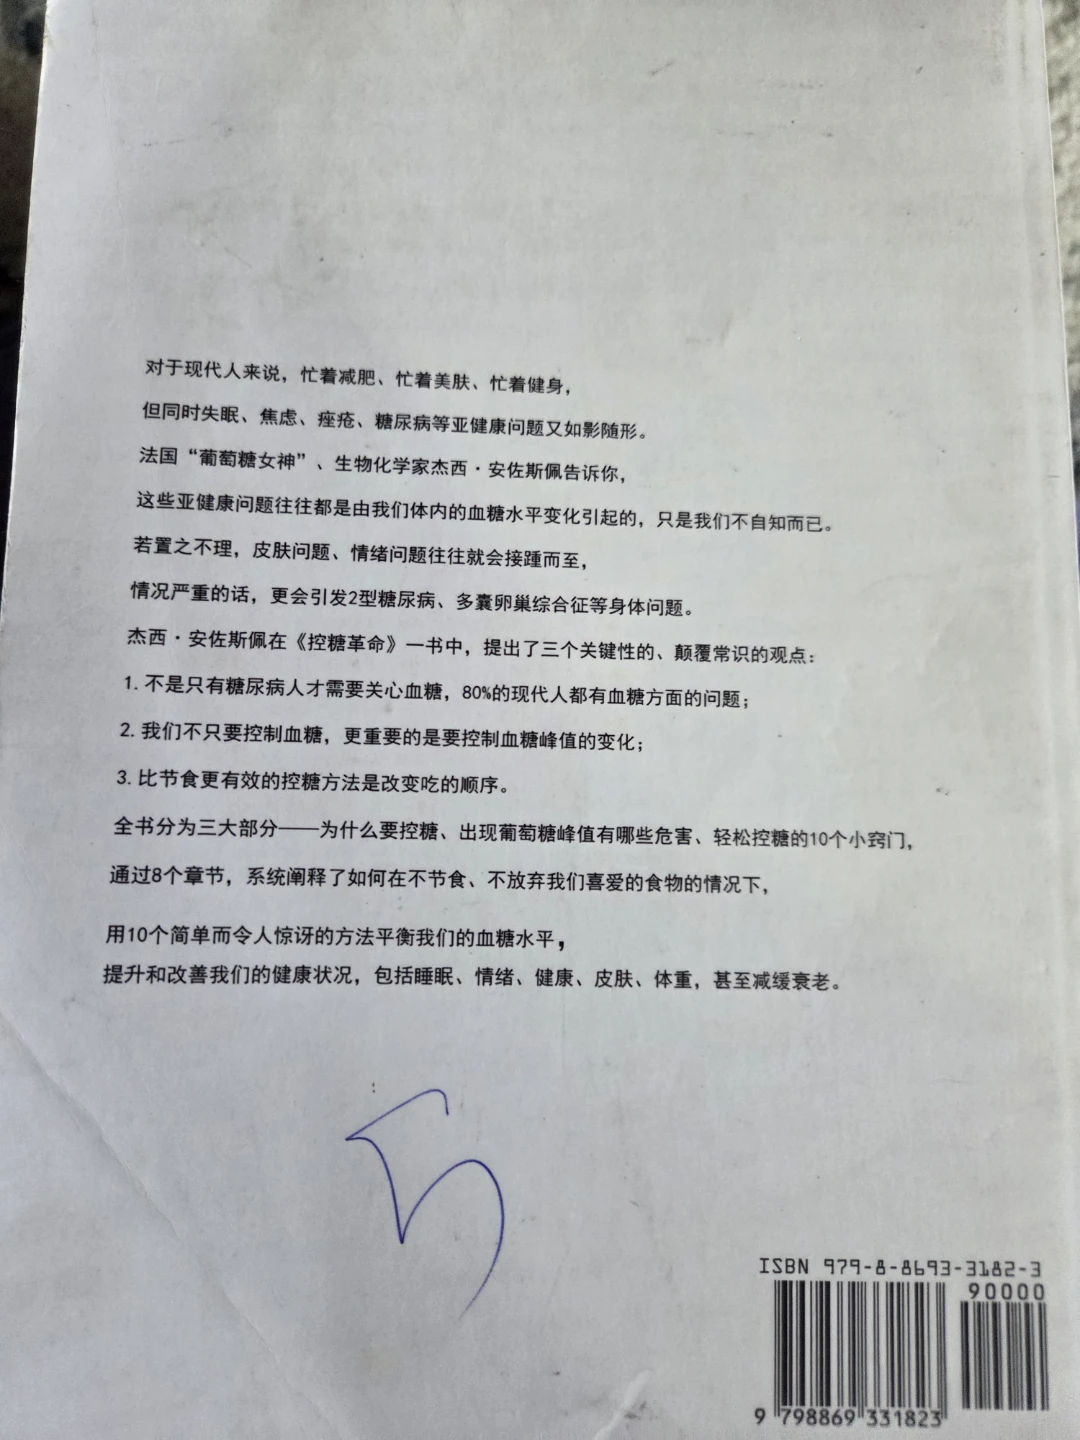 对于现代人来说，忙着减肥、忙着美肤、忙着健身，
但同时失眠、焦虑、痤疮、糖尿病等亚健康问题又如影随形。
法国“葡萄糖女神”、生物化学家杰西·安佐斯佩告诉你，
这些亚健康问题往往都是由我们体内的血糖水平变化引起的，只是我们不自知而已。
若置之不理，皮肤问题、情绪问题往往就会接踵而至，
情况严重的话，更会引发2型糖尿病、多囊卵巢综合征等身体问题。
杰西·安佐斯佩在《控糖革命》一书中，提出了三个关键性的、颠覆常识的观点：
1. 不是只有糖尿病人才需要关心血糖，80%的现代人都有血糖方面的问题；
2. 我们不只要控制血糖，更重要的是要控制血糖峰值的变化；
3. 比节食更有效的控糖方法是改变吃的顺序。
全书分为三大部分——为什么要控糖、出现葡萄糖峰值有哪些危害、轻松控糖的10个小窍门，
通过8个章节，系统阐释了如何在不节食、不放弃我们喜爱的食物的情况下，
用10个简单而令人惊讶的方法平衡我们的血糖水平，
提升和改善我们的健康状况，包括睡眠、情绪、健康、皮肤、体重，甚至减缓衰老。
ISBN 979-8-8693-3182-3
90000
9 798869 331823